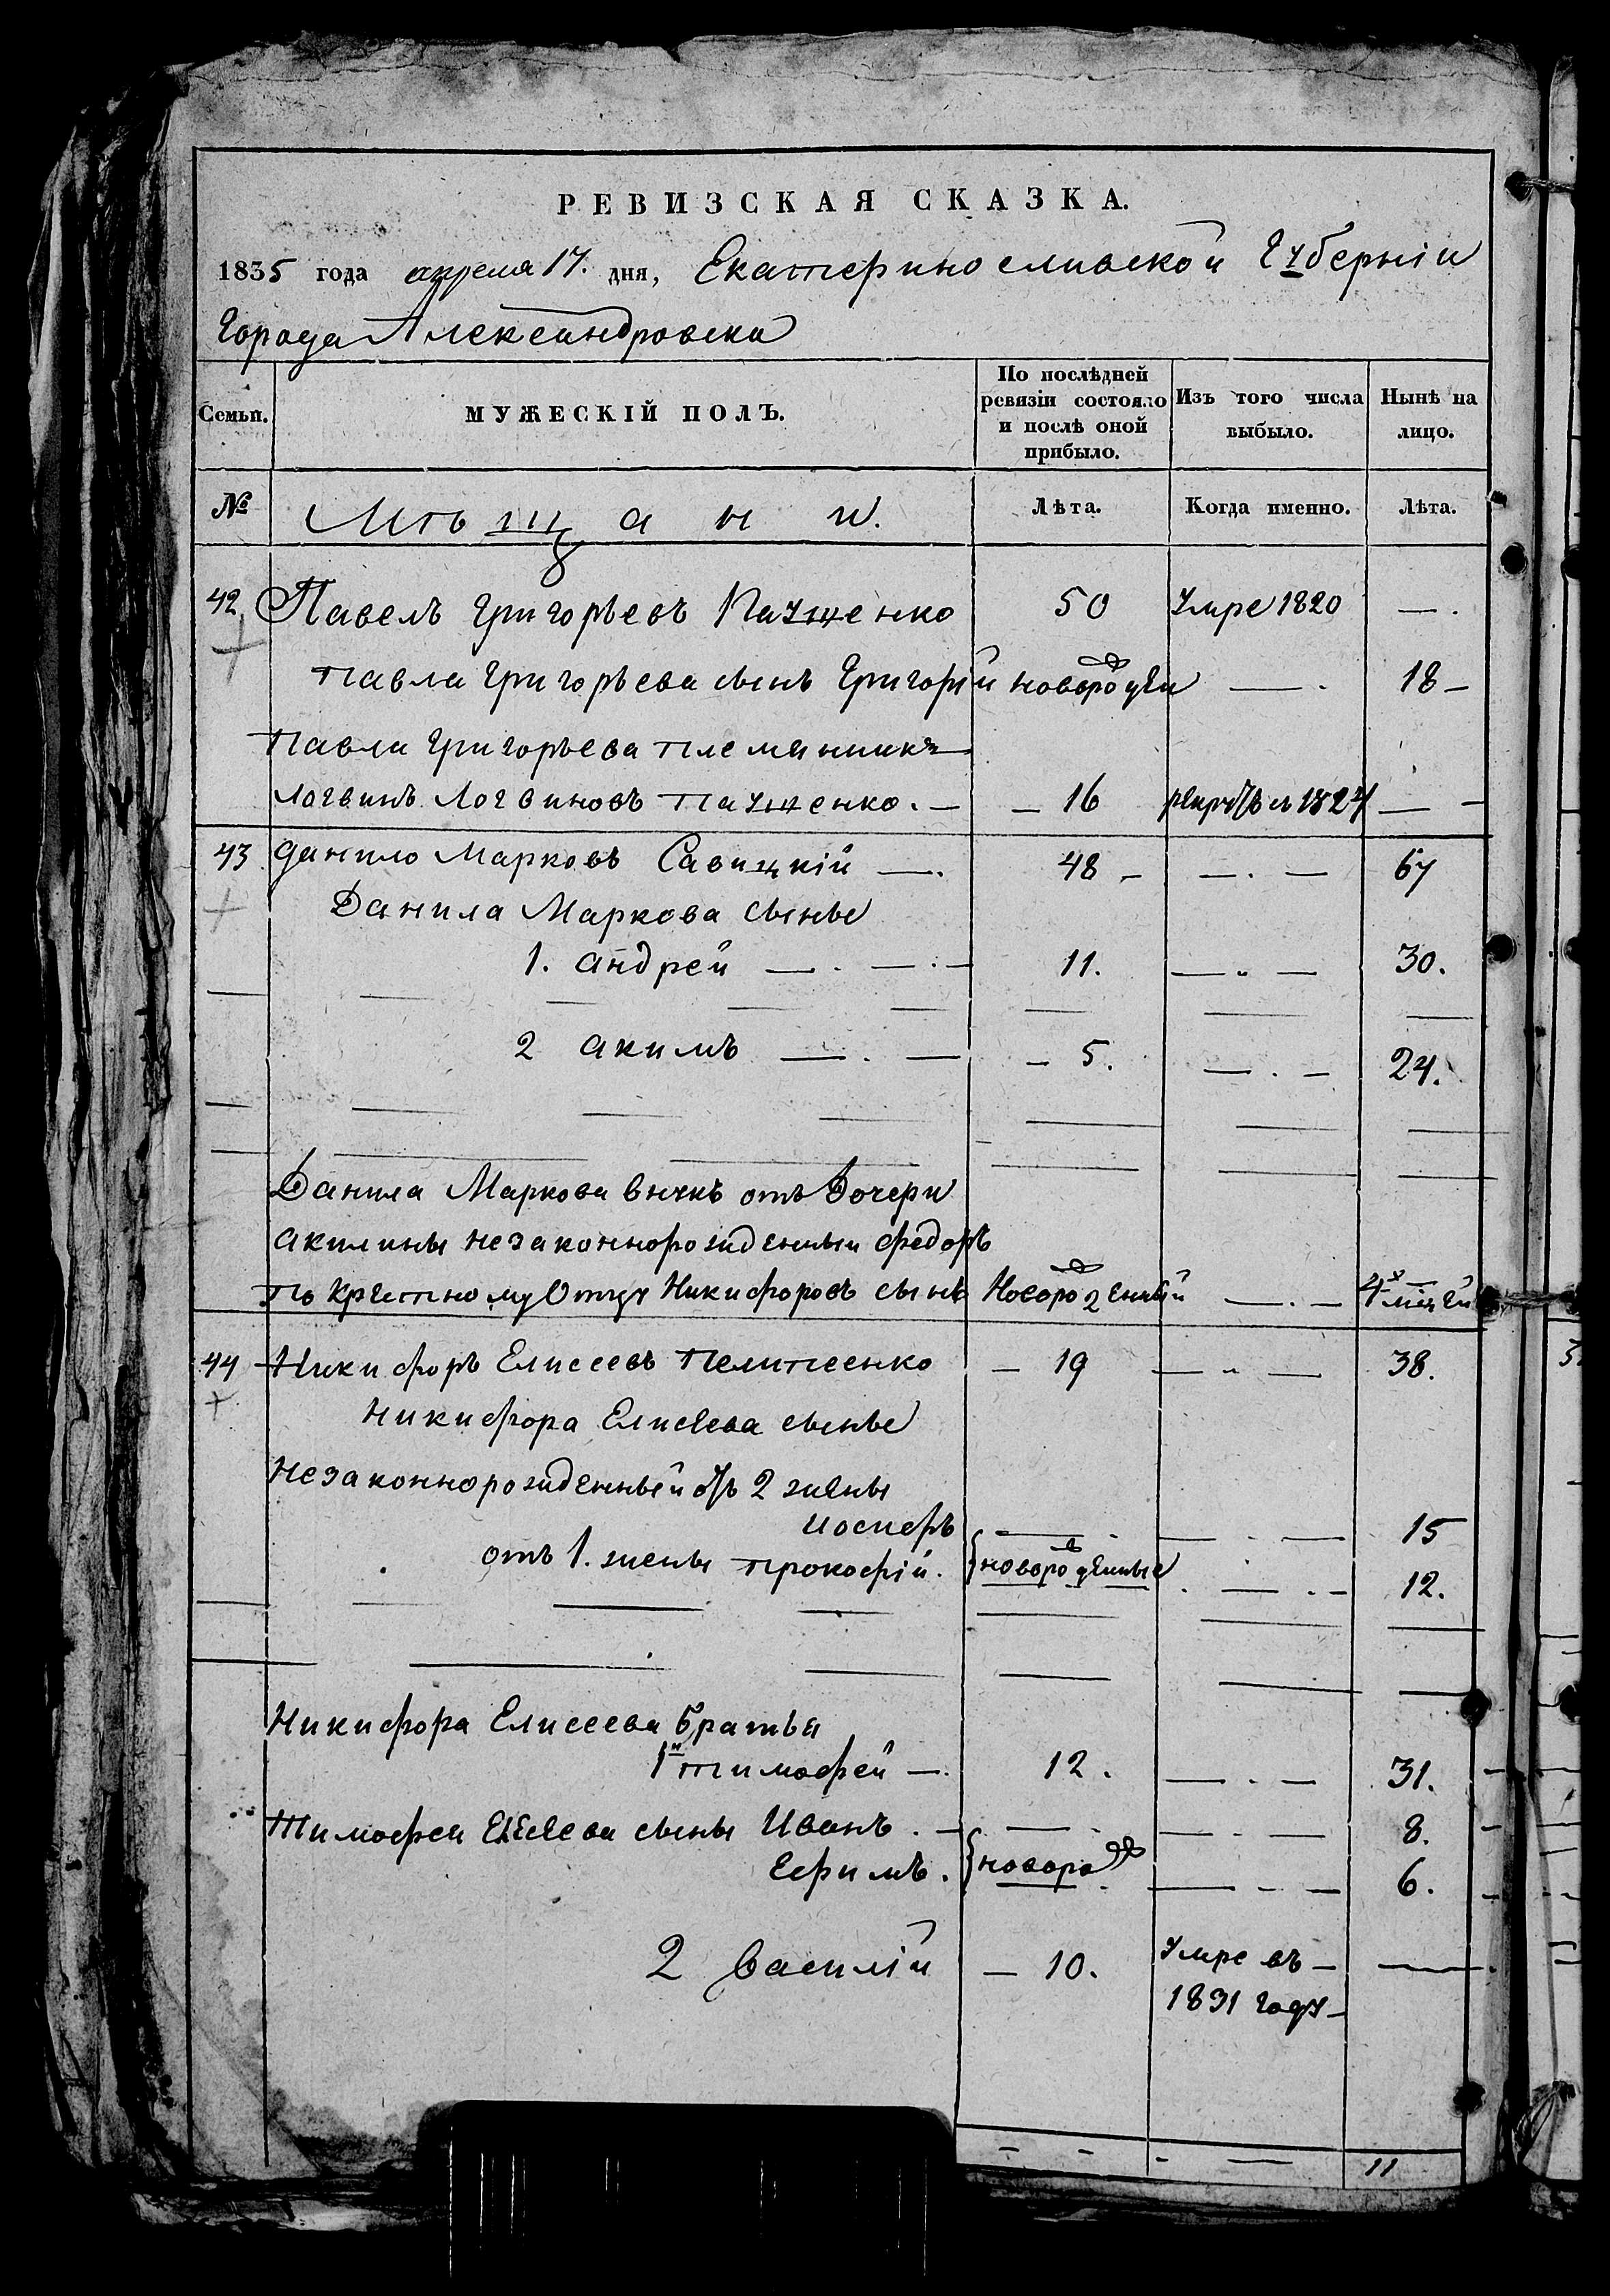 РЕВИЗСКАЯ СКАЗКА.
1835 года апреля 17. дня, Екатеринославской Губернiи
Города Александровска
Семьи. МУЖЕСКIЙ ПОЛЪ. По послѣдней ревизiи состояло и послѣ оной прибыло. Изъ того числа выбыло. Нынѣ на лицо.
№ Мѣщани. Лѣта. Когда именно. Лѣта.
42 Павелъ Григорьевъ Пащенко 50 Умре 1820 — .
Павла Григорьева сынъ Григорiй новорожден — . 18 –
Павла Григорьева племянникъ
Логвинъ Логвиновъ Пащенко. — – 16 1827 — –
43 Данило Марковъ Савицкiй — . 48 – — . — 67
Данила Маркова сынье
1. Андрей — . — . — 11. — „ — 30.
2 Акимъ — . — – 5. — . – 24.
Данила Маркова внукъ отъ Дочери
Акилины незаконнорожденный Федоръ
По Крестному Отцу Никифоровъ сынъ Новорожденный — . –
44 Никифоръ Елисеевъ – 19 — „ — 38.
Никифора Елисеева сынье
Незаконнорожденный отъ 2 жены
Иосифъ — . — . — 15
отъ 1. жены Прокофiй. новорожденные . — . – 12.
Никифора Елисеева братья
1й Тимофей — . 12. — . — 31.
Тимофея Елесеева сыны Иванъ . – — . — . — 8.
Ефимъ. новорожд — – — 6.
2 Василiй – 10. Умре въ – —
1831 году –
– – – — 11